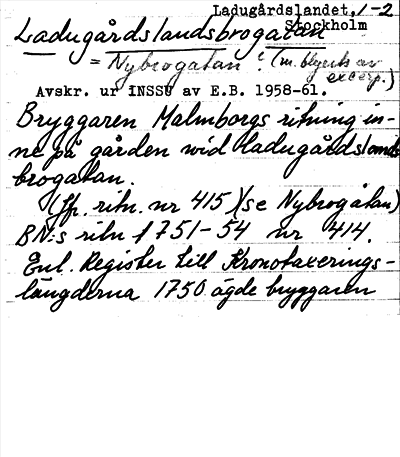 Ladugårdslandet, 1-2
Stockholm
Ladugårdslandsbrogatan
= Nybrogatan? (m. blyerts av
excerp.)
Avskr. ur INSSU av E.B. 1958-61.
Bryggaren Malmborgs ritning in-
ne på gården wid Ladugårdslands
brogatan.
(Jfr. ritn. nr 415) (se Nybrogatan)
BN:s ritn 1751-54 nr 414.
Enl. Register till Kronotaxerings-
längderna 1750 ägde bryggaren